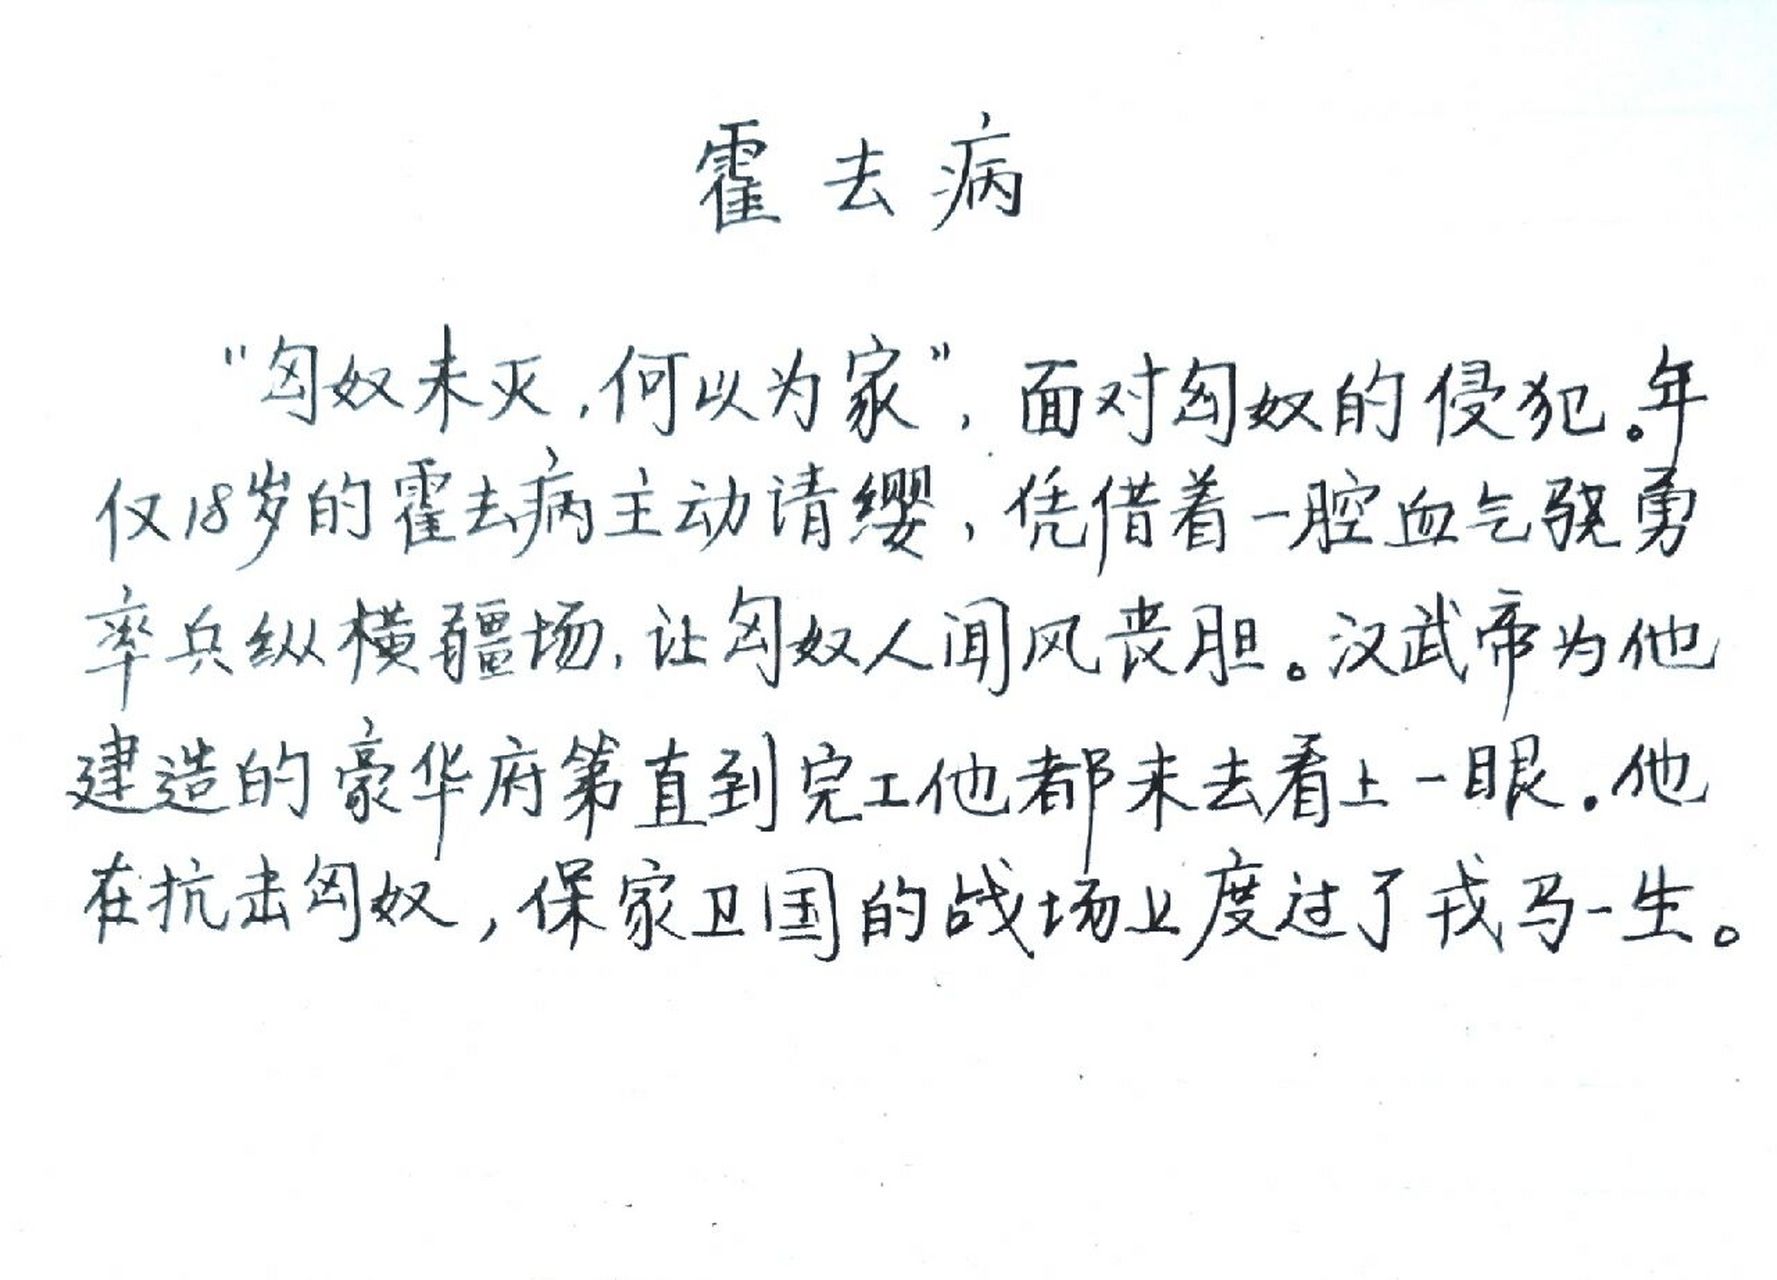 霍去病
“匈奴未灭,何以为家”,面对匈奴的侵犯。年
仅18岁的霍去病主动请缨,凭借着一腔血气骁勇
率兵纵横疆场,让匈奴人闻风丧胆。汉武帝为他
建造的豪华府第直到完工他都未去看上一眼.他
在抗击匈奴,保家卫国的战场上度过了戎马一生。